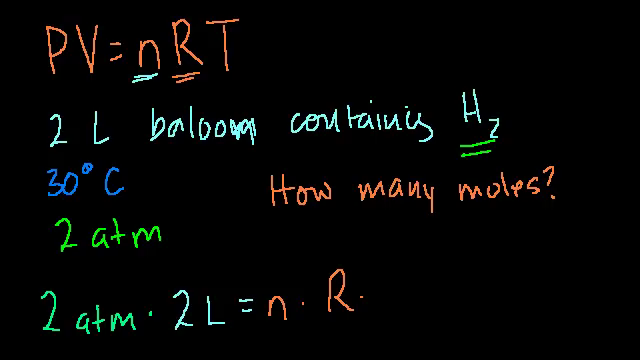 PV=nRT
2 L baloom containing H₂
30° C
How many moles?
2 atm
2 atm · 2 L = n · R ·